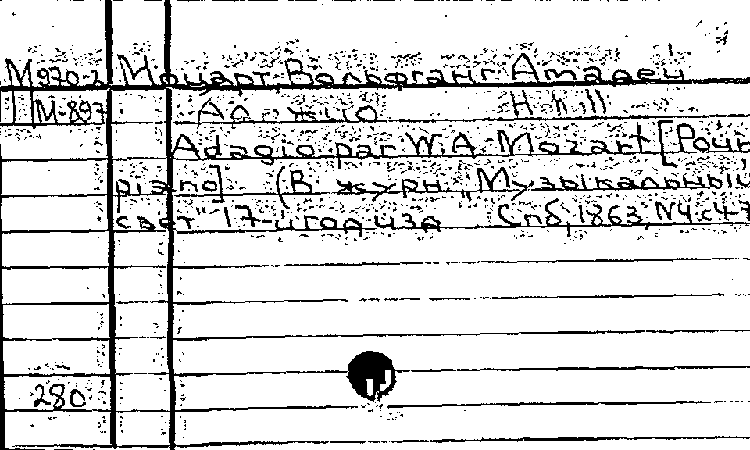 М970-2 Моцарт, Вольфганг Амадей
М-897 Адажио H-h ll
Adagio par W. A. Mozart [Pour
piano]. (В журн. "Музыкальный
свет" 17-й год изд Спб, 1863, №4. с 4-7
280